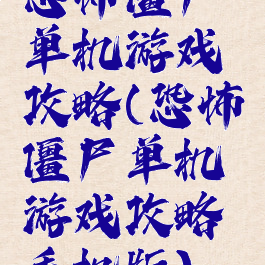 恐怖僵尸
单机游戏
攻略(恐怖
僵尸单机
游戏攻略
手机版)